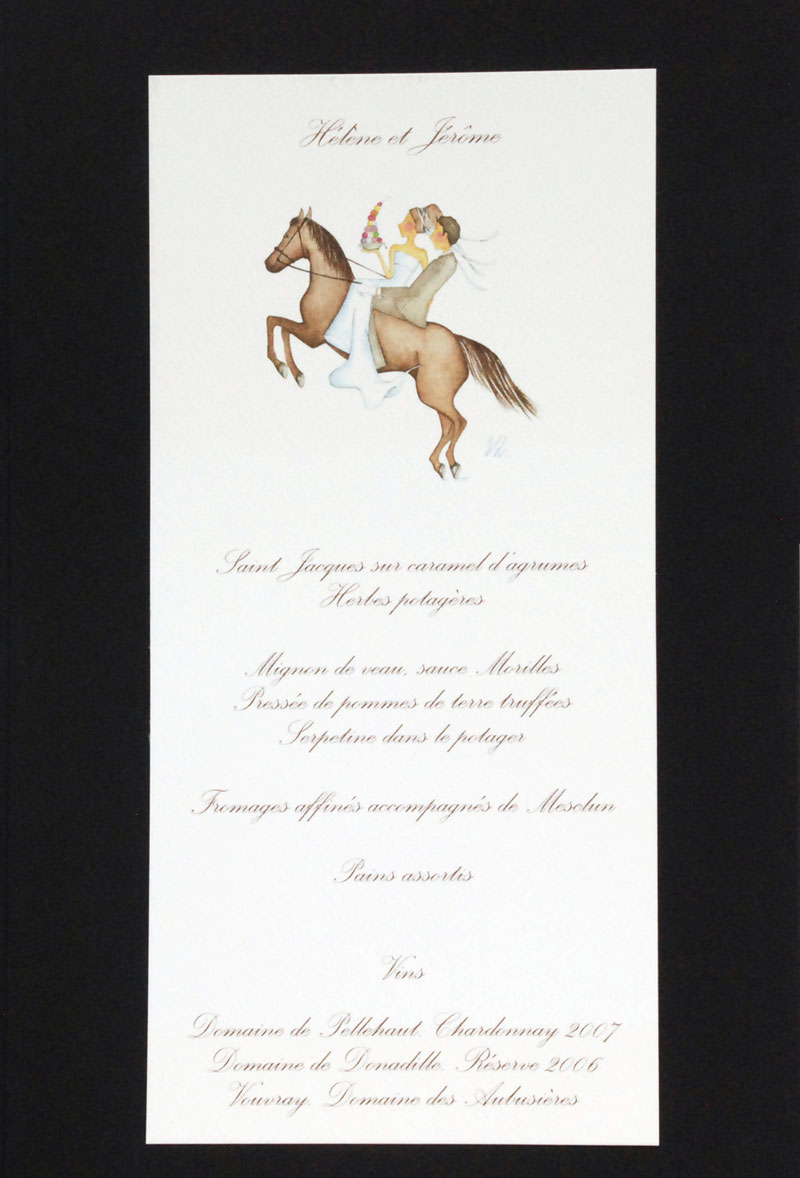 Hélène et Jérôme
Saint Jacques sur caramel d'agrumes
Herbes potagères
Mignon de veau, sauce Morilles
Pressée de pommes de terre truffées
Serpetine dans le potager
Fromages affinés accompagnés de Mesclun
Pains assortis
Vins
Domaine de Pellehaut. Chardonnay 2007
Domaine de Donadille. Réserve 2006
Vouvray. Domaine des Aubusières